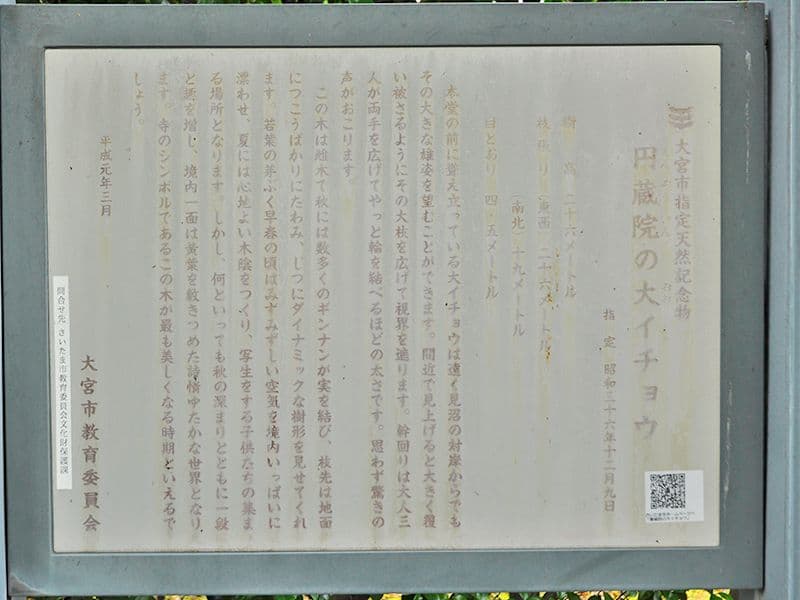 大宮市指定天然記念物
円蔵院の大イチョウ
指定 昭和三十六年十二月九日
樹高 二十六メートル
枝張り 東西 二十六メートル
南北 十九メートル
目どおり 四・五メートル
本堂の前に聳え立っている大イチョウは遠く見沼の対岸からでも
その大きな雄姿を望むことができます。間近で見上げると大きく覆
い被さるようにその大枝を広げて視界を遮ります。幹回りは大人三
人が両手を広げてやっと輪を結べるほどの太さです。思わず驚きの
声がおこります。
この木は雌木で秋には数多くのギンナンが実を結び、枝先は地面
につこうばかりにたわみ、じつにダイナミックな樹形を見せてくれ
ます。若葉の芽ぶく早春の頃はみずみずしい空気を境内いっぱいに
漂わせ、夏には心地よい木陰をつくり、写生をする子供たちの集ま
る場所となります。しかし、何といっても秋の深まりとともに一段
と趣を増し、境内一面は黄葉を敷きつめた詩情ゆたかな世界となり
ます。寺のシンボルであるこの木が最も美しくなる時期といえるで
しょう。
平成元年三月
大宮市教育委員会
問合せ先 さいたま市教育委員会文化財保護課